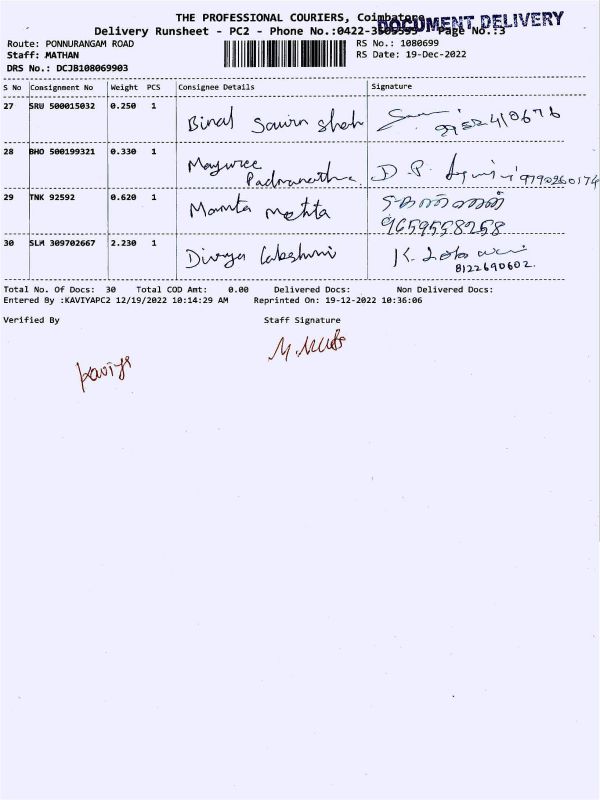 THE PROFESSIONAL COURIERS, Coimbatore
DOCUMENT DELIVERY
Delivery Runsheet - PC2 - Phone No.:0422- Page No.:3
Route: PONNURANGAM ROAD
RS No.: 1080699
Staff: MATHAN
RS Date: 19-Dec-2022
DRS No.: DCJB108069903
S No Consignment No Weight PCS Consignee Details Signature
27 SRU 500015032 0.250 1 Binal Sawin Shah
28 BHO 500199321 0.330 1 Mayuree
Padmanatha D. P. 9790260174
29 TNK 92592 0.620 1 Mamta Mehta
9659558258
30 SLM 309702667 2.230 1 Divya Lakshmi K.
8122690602.
Total No. Of Docs: 30 Total COD Amt: 0.00 Delivered Docs: Non Delivered Docs:
Entered By :KAVIYAPC2 12/19/2022 10:14:29 AM Reprinted On: 19-12-2022 10:36:06
Verified By Staff Signature
Kaviya